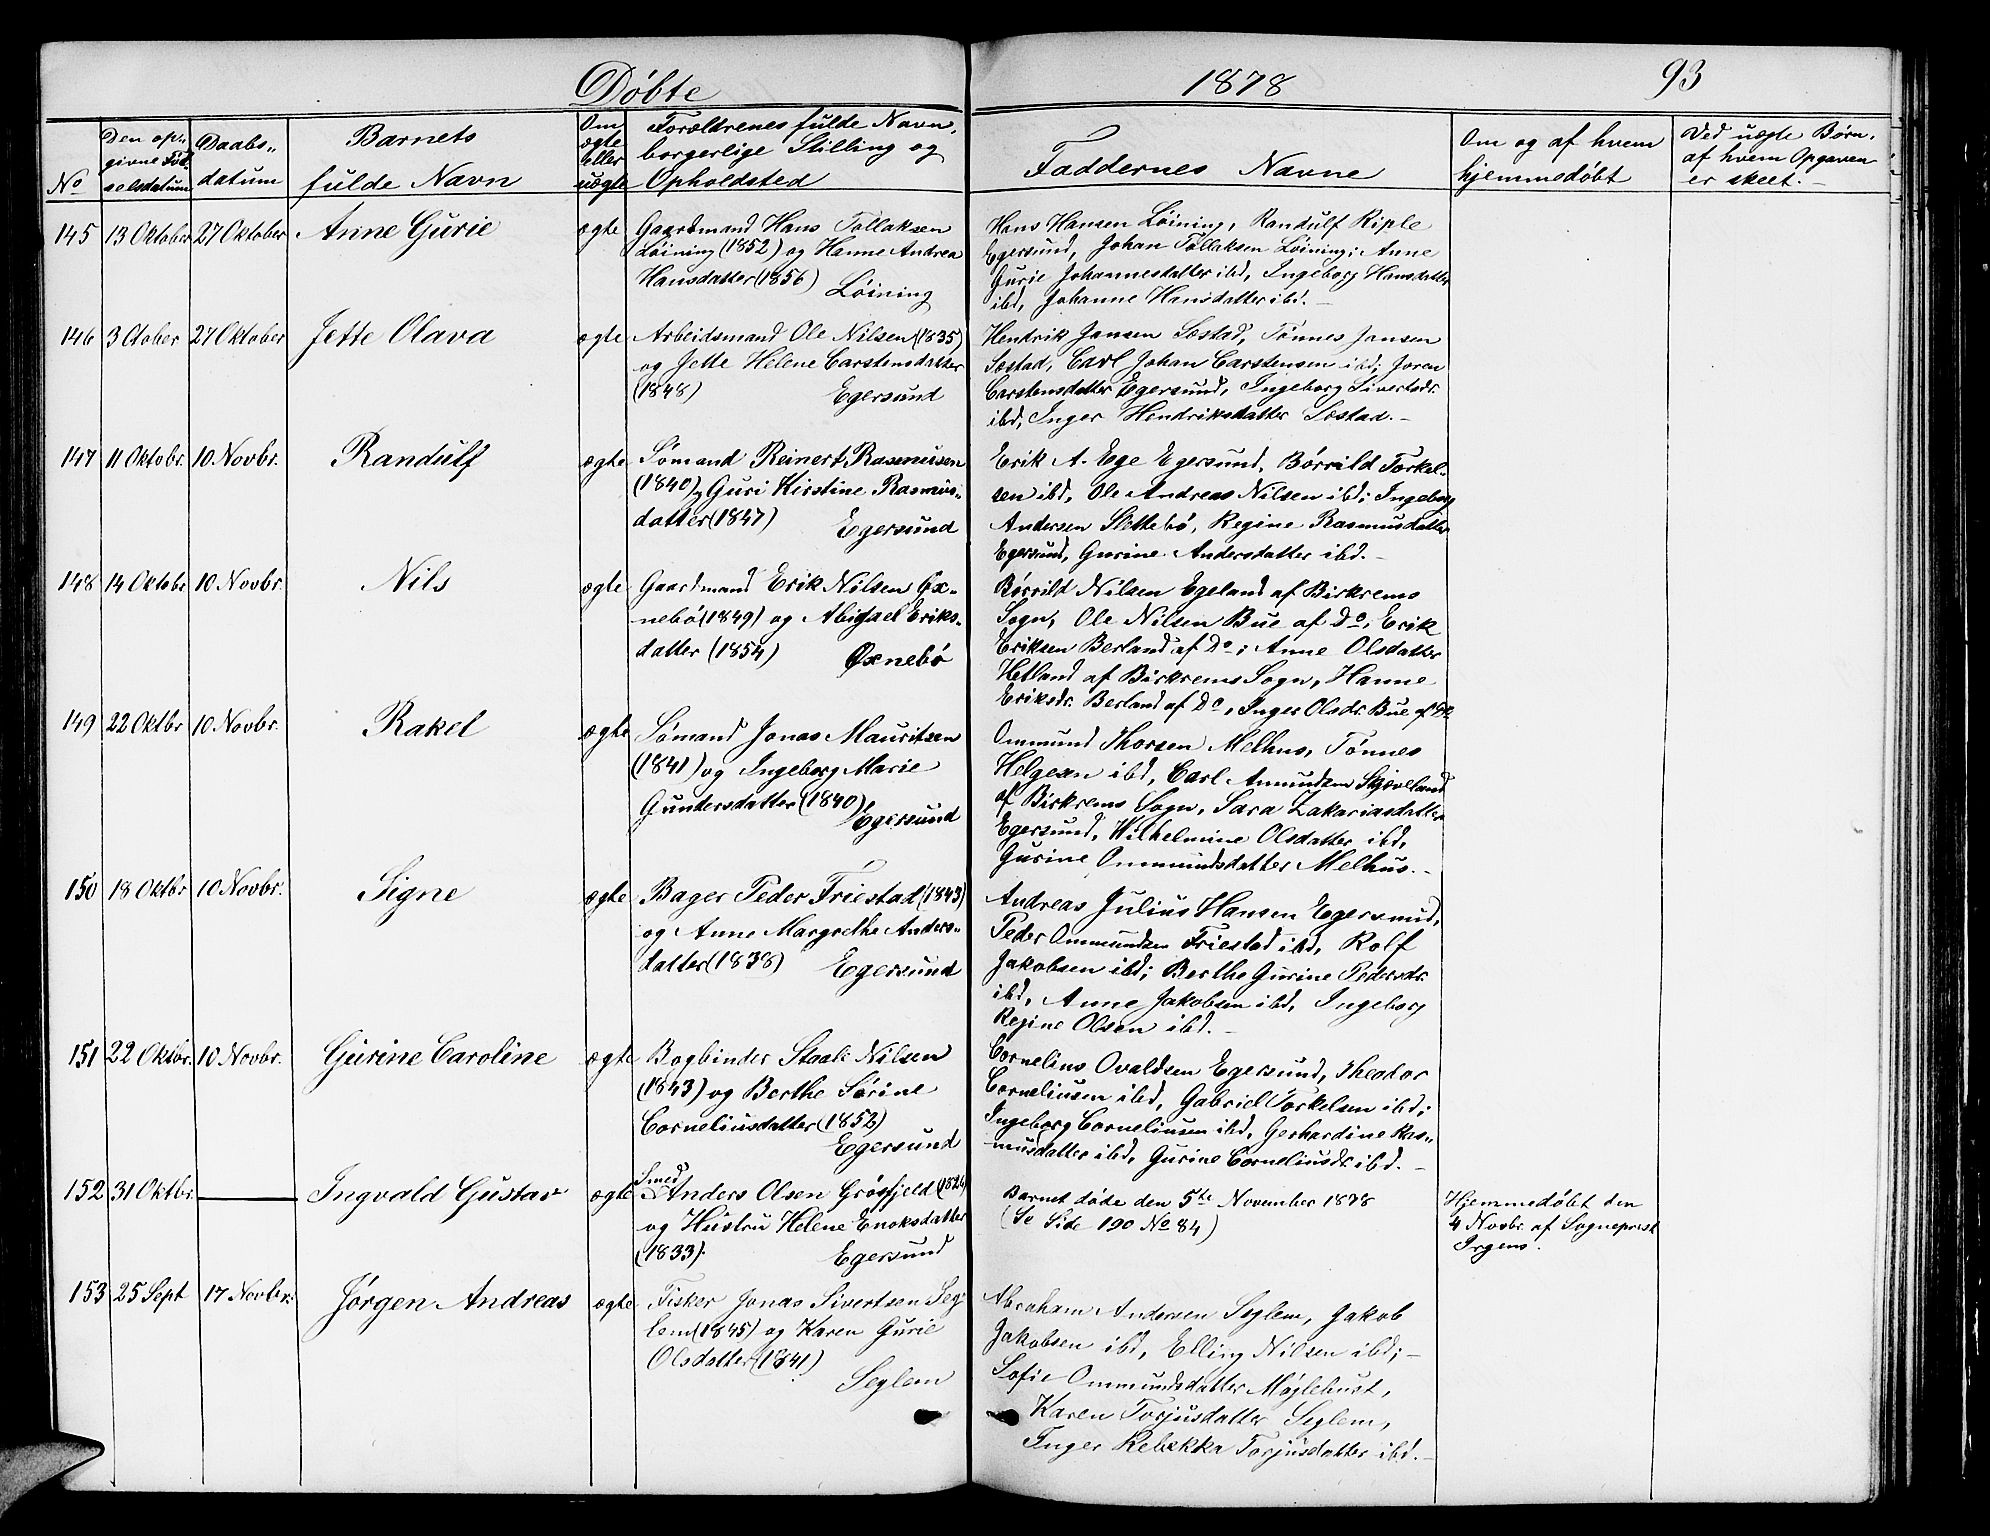 Døbte
1878
93
No
Den op-
givne Fød-
selsdatum
Daabs-
datum
Barnets
fulde Navn
Om
ægte
eller
uægte
Forældrenes fulde Navn,
borgerlige Stilling og
Opholdsted
Faddernes Navne
Om og af hvem
hjemmedøbt
Ved uægte Børn,
af hvem Opgaven
er skeet.-
145 13 Oktober 27 Oktober Anne Gurie ægte
Gaardmand Hans Tollaksen
Løining (1852) og Hanne Andrea
Hansdatter (1856) Løining
Hans Hansen Løining, Randulf Riple
Egersund, Johan Tollaksen Løining; Anne
Gurie Johannesdatter ibd, Ingeborg Hansdatter
ibd, Johanne Hansdatter ibd.-
146 3 Otober 27 Oktober Jette Olava ægte
Arbeidsmand Ole Nilsen (1835)
og Jette Helene Carstensdatter
(1848) Egersund
Hendrik Jansen Sæstad, Tønnes Jansen
Sæstad, Carl Johan Carstensen ibd; Joren
Carstensdatter Egersund, Ingeborg Sivertsdr.
ibd, Inger Hendriksdatter Sæstad.-
147 11 Oktobr. 10 Novbr. Randulf ægte
Sømand Reinert Rasmusen
(1840) og Guri Kirstine Rasmus-
datter (1847) Egersund
Erik A. Ege Egersund, Børrild Torkel-
sen ibd, Ole Andreas Nilsen ibd; Ingeborg
Andersen Slettebø, Regine Rasmusdatter
Egersund, Gurine Andersdatter ibd.-
148 14 Oktobr 10 Novbr. Nils ægte
Gaardmand Erik Nilsen Øx-
nebø (1849) og Abigael Eriks-
datter (1854) Øxnebø
Børrild Nilsen Egeland af Birkrems
Sogn, Ole Nilsen Bue af Do, Erik
Eriksen Berland af Do; Anne Olsdatter
Hetland af Birkrems Sogn, Hanne
Eriksdr. Berland af Do, Inger Olsdr. Bue af Do
149 22 Oktbr 10 Novbr. Rakel ægte
Sømand Jonas Mauritsen
(1841) og Ingeborg Marie
Gundersdatter (1840), Egersund
Ommund Thorsen Melhus, Tønnes
Helgesen ibd, Carl Amundsen Skjeveland
af Birkrems Sogn, Sara Zakariasdatter
Egersund, Wilhelmine Olsdatter ibd,
Gurine Ommundsdatter Melhus.-
150 18 Oktbr 10 Novbr. Signe ægte
Bager Peder Friestad (1843)
og Anne Margrethe Anders-
datter (1838) Egersund
Andreas Julius Hansen Egersund,
Peder Ommundsen Friestad ibd, Rolf
Jakobsen ibd; Berthe Gurine Pedersdr.
ibd, Anne Jakobsen ibd, Ingeborg
Regine Olsen ibd.-
151 22 Oktbr. 10 Novbr. Gurine Caroline ægte
Bogbinder Staale Nilsen
(1843) og Berthe Sørine
Corneliusdatter (1852)
Egersund
Cornelius Ovaldsen Egersund, Theodor
Corneliusen ibd, Gabriel Torkelsen ibd;
Ingeborg Corneliusen ibd, Gerhardine Ras-
musdatter ibd, Gurine Corneliusdr ibd.-
152 31 Oktbr. Ingvald Gustav ægte
Smed
Anders Olsen Grøsfjeld (1826)
og Hustru Helene Enoksdatter
(1833). Egersund
Barnet døde den 5te November 1878
(Se Side 190 No 84)
Hjemmedøbt den
4 Novbr. af Sogneprest
Irgens.
153 25 Sept 17 Novbr. Jørgen Andreas ægte
Fisker Jonas Sivertsen Seg-
lem (1845) og Karen Gurie
Olsdatter (1841)
Seglem
Abraham Andersen Seglem, Jakob
Jakobsen ibd, Elling Nilsen ibd;-
Sofie Ommundsdatter Møglehust,
Karen Torjusdatter Seglem,
Inger Rebekka Torjusdatter ibd.-